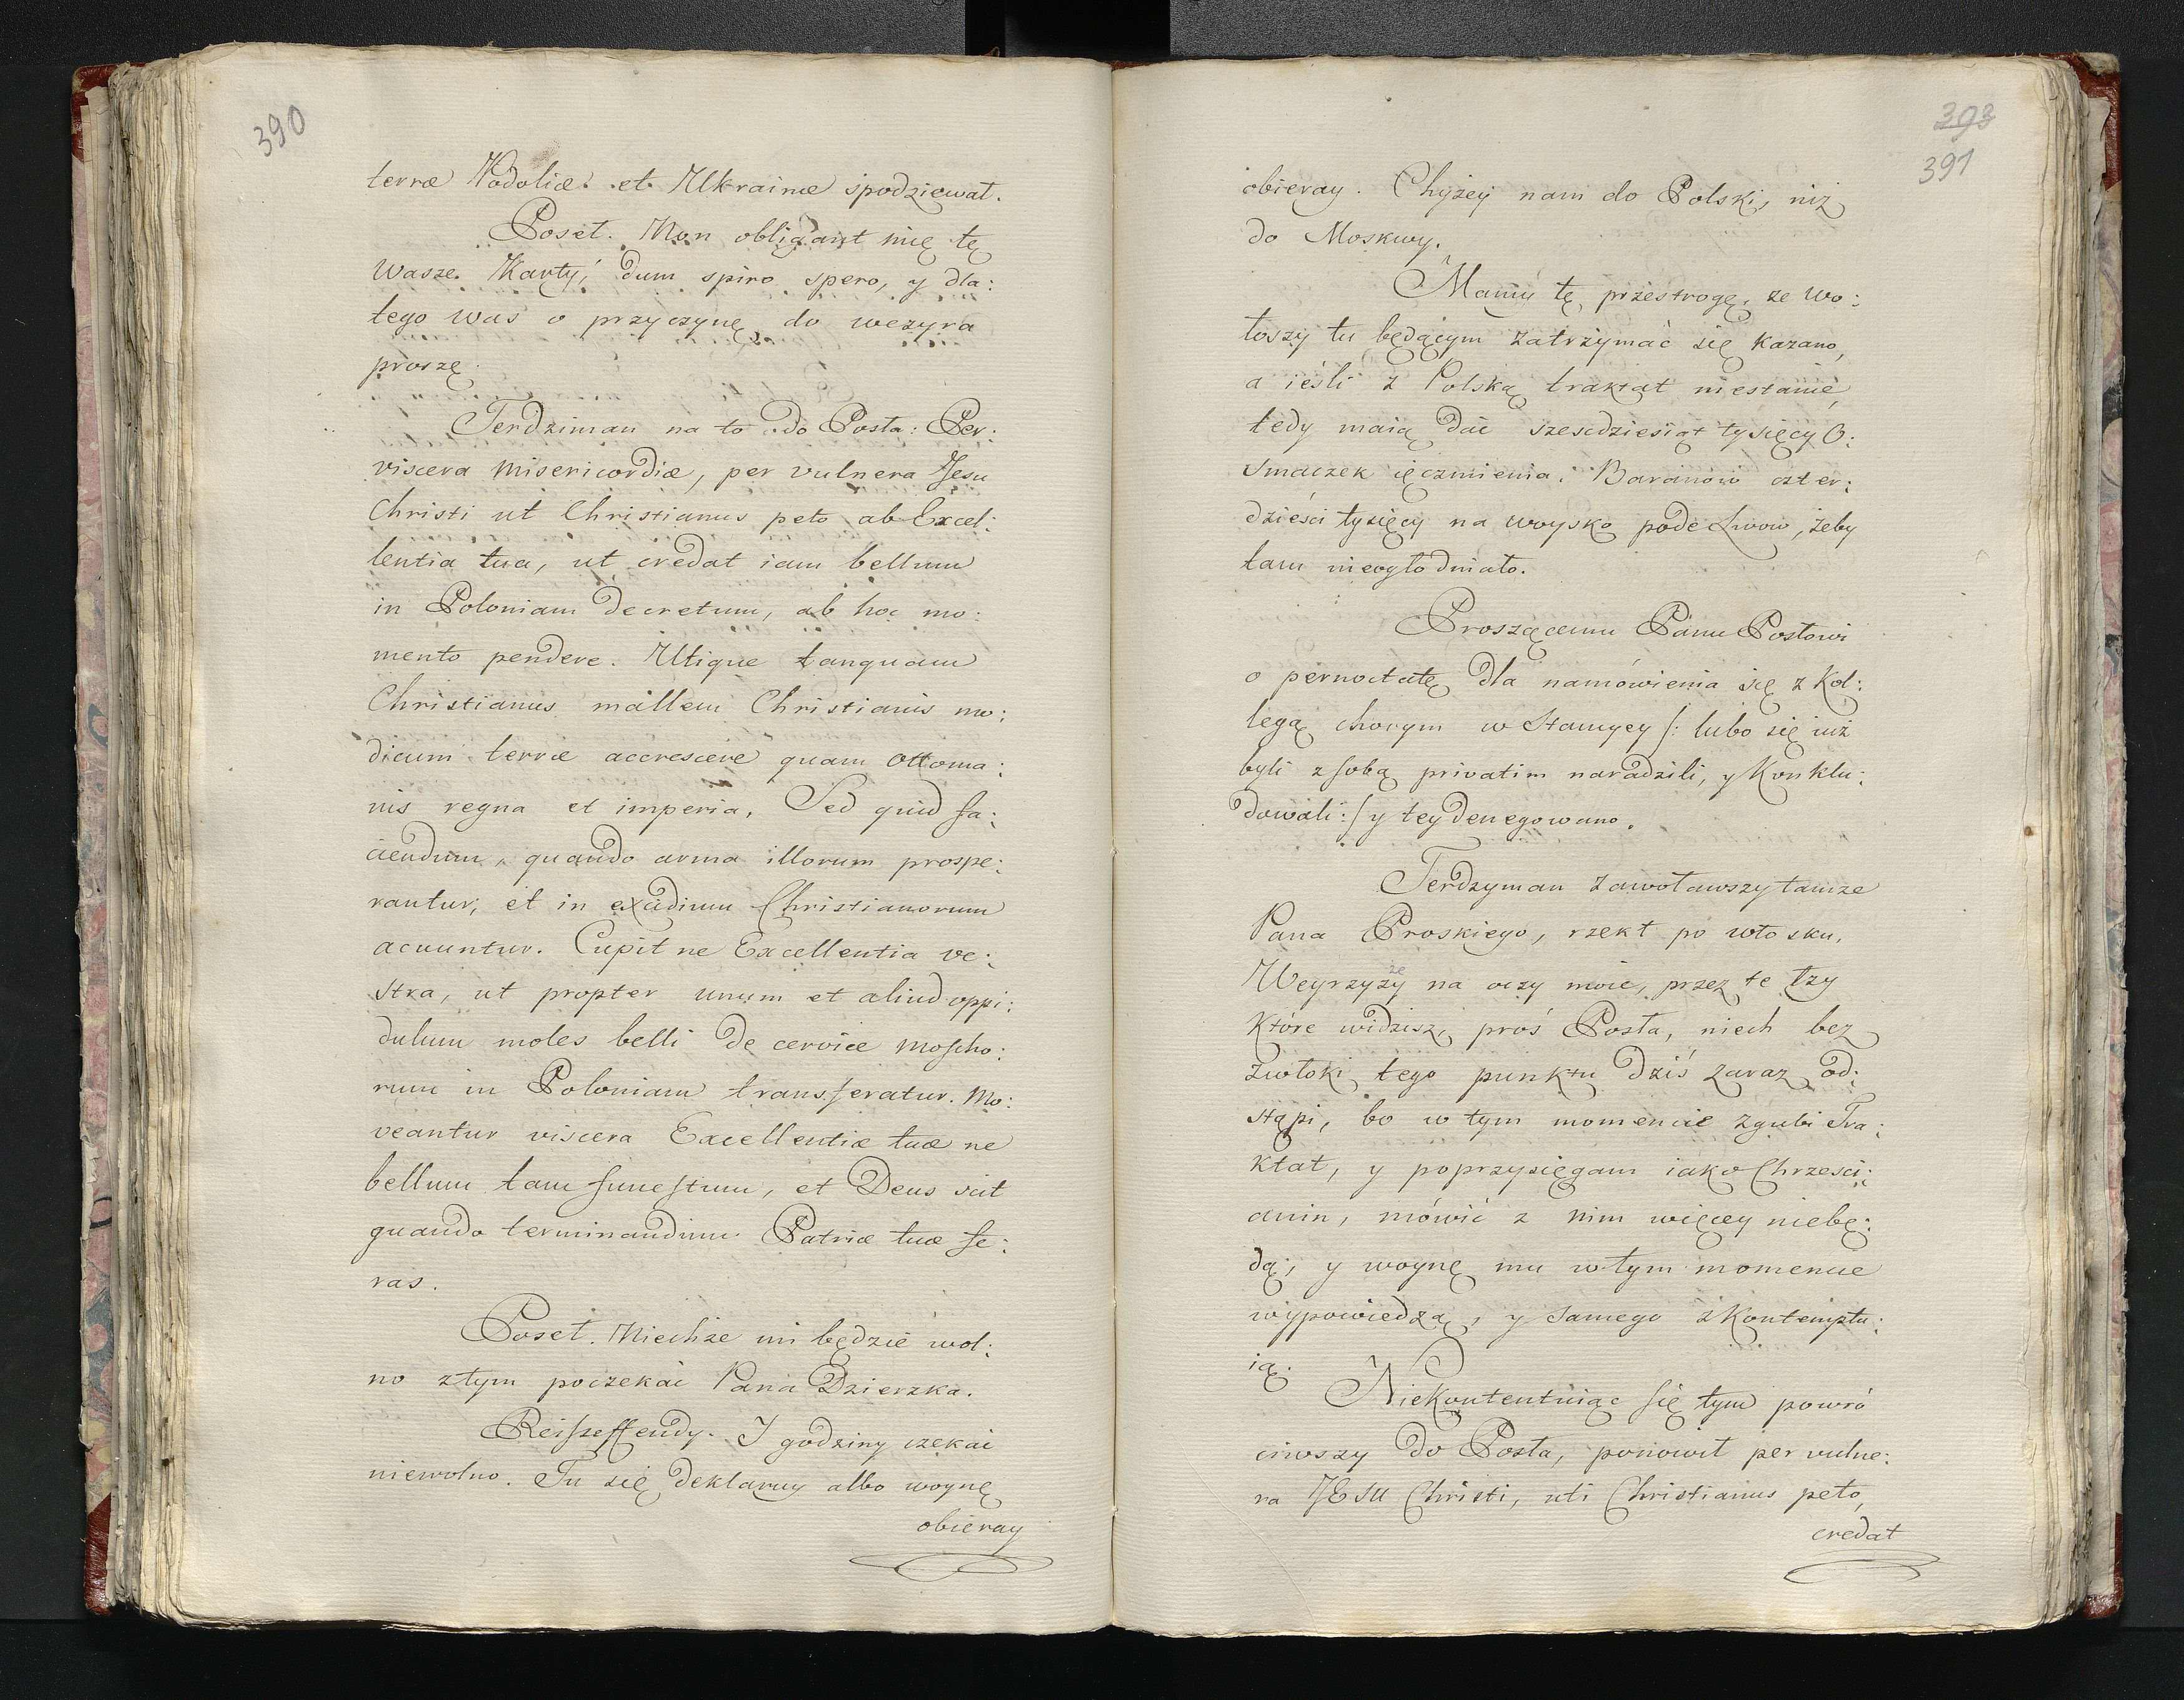 390
terræ Podoliæ et Ukrainæ spodziewał.
Poseł. Non obligant mię tę
wasze Karty, dum spiro spero, y dla:
tego was o przyczynę do wezyra
proszę.
Terdziman na to do Posła: Per
viscera misericordiæ, per vulnera Jesu
Christi ut Christianus peto ab Excel:
lentia tua, ut credat iam bellum
in Poloniam decretum, ab hoc mo:
mento pendere. Utique tanquam
Christianus mallem Christianis mo:
dicum terræ accrescere quam Ottoma:
nis regna et imperia. Sed quid fa:
ciendum, quando arma illorum prospe:
rantur, et in excidium Christianorum
acuuntur. Cupit ne Excellentia ve:
stra, ut propter unum et aliud oppi:
dulum moles belli de cervice Moscho:
rum in Poloniam transferatur. Mo:
veantur viscera Excellentiæ tuæ ne
bellum tam funestum, et Deus scit
quando terminandum Patriæ tuæ fe:
ras.
Poseł. Niechże mi będzie wol:
no z tym poczekać Pana Dzierzka.
Reiszeffendy. I godziny czekać
niewolno. Tu się deklaruy albo woynę
obieray
393
391
obieray. Chyżey nam do Polski, niż
do Moskwy.
Mamy tę przestrogę, ze Wo:
łoszy tu będącym zatrzymać się kazano,
a ieśli z Polską traktat niestanie,
tedy maią dać szescdziesiąt tysięcy O:
smaczek ięczmienia. Baranów czter:
dzieści tysięcy na woysko pode Lwow, żeby
tam niegłodniało.
Proszącemu Panu Posłowi
o pernoctatę dla namówienia się z Kol:
legą chorym w Stancyey /: lubo się iuż
byli z sobą privatim naradzili, y Konklu:
dowali :/ y tey denegowano.
Terdzyman zawoławszy tamze
Pana Proskiego, rzekł po włosku,
Weyrzyży na oczy moie, przez te łzy
że
Które widzisz, proś Posła, niech bez
zwłoki tego punktu dziś zaraz od:
stąpi, bo w tym momencie zgubi Tra:
ktat, y poprzysięgam iako Chrzesci:
anin, mówić z nim więcey niebę:
dą, y woynę mu w tym momencie
wypowiedzą, y samego zkontemptu:
ią.
Niekontentuiąc się tym powró
ciwszy do Posła, ponowił per vulne:
ra JESU Christi, uti Christianus peto,
credat